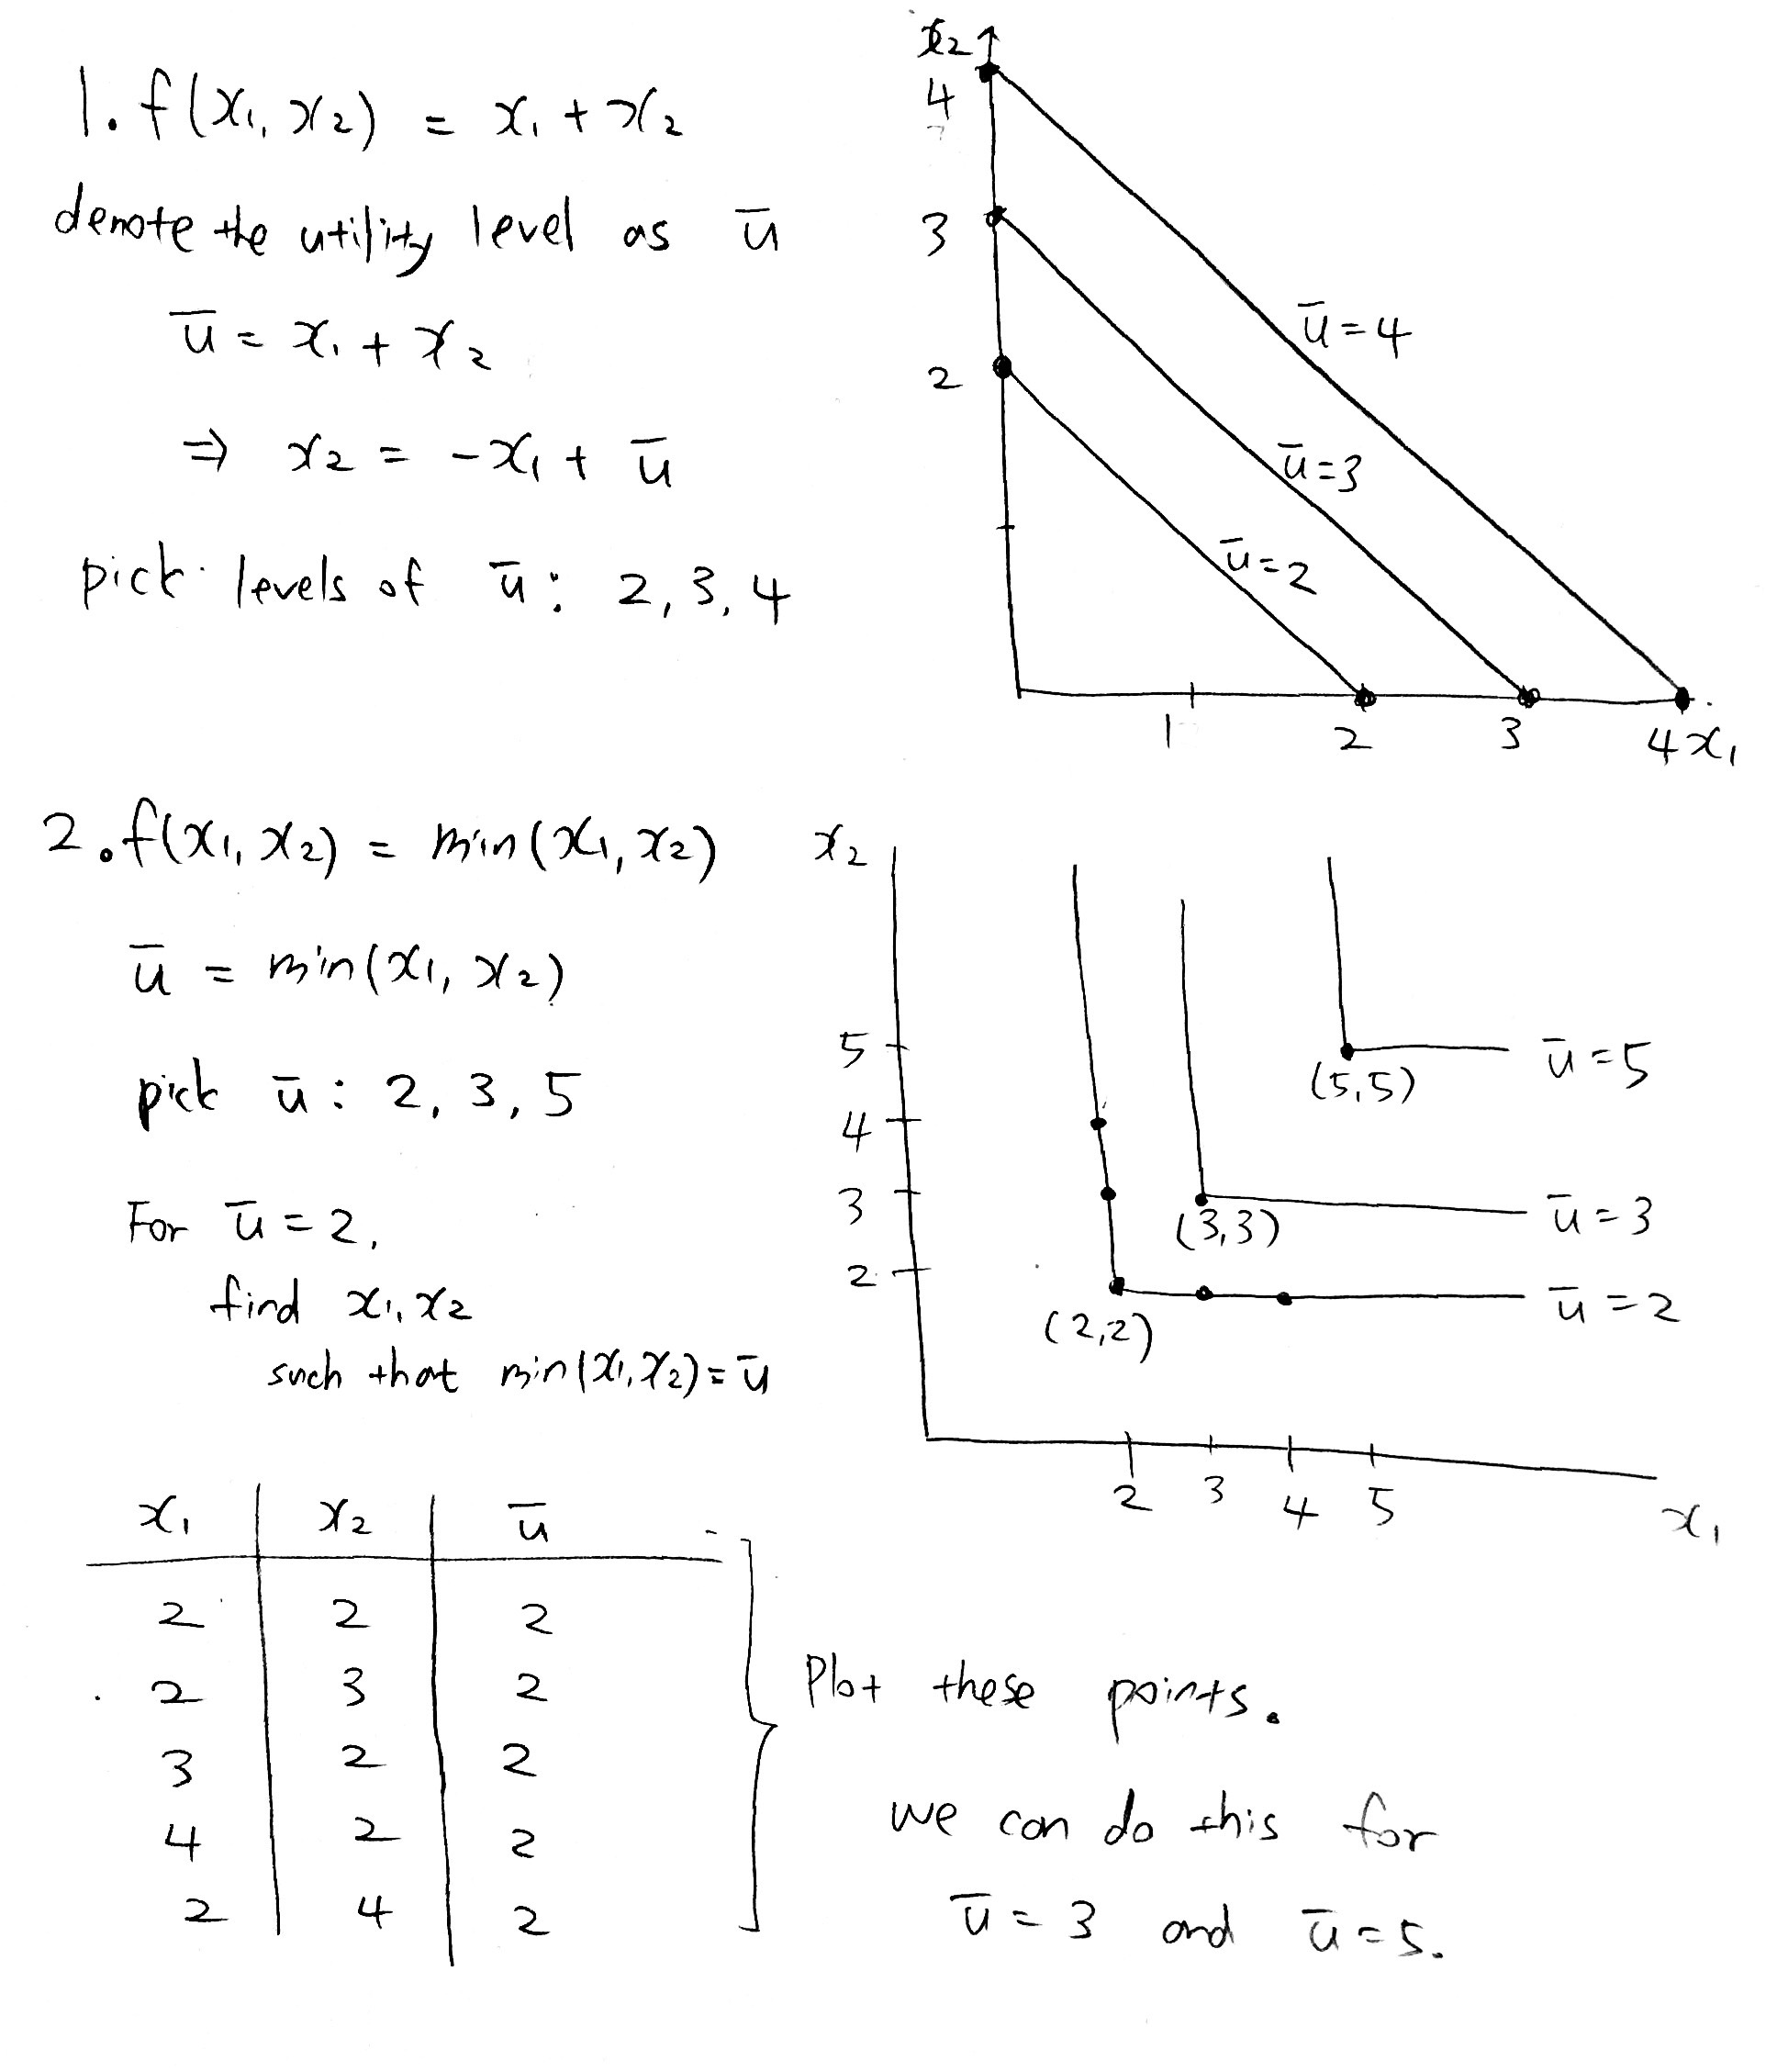 1. f(x₁, x₂) = x₁ + x₂
denote the utility level as ū
ū = x₁ + x₂
⇒ x₂ = -x₁ + ū
pick levels of ū : 2, 3, 4
x₂
4
3
2
ū=4
ū=3
ū=2
1 2 3 4 x₁
2. f(x₁, x₂) = min(x₁, x₂)
ū = min(x₁, x₂)
pick ū : 2, 3, 5
For ū = 2,
find x₁, x₂
such that min(x₁, x₂) = ū
x₂
5
4
3
2
(5,5) ū=5
(3,3) ū=3
(2,2) ū=2
2 3 4 5 x₁
x₁ x₂ ū
2 2 2
2 3 2
3 2 2
4 2 2
2 4 2
Plot these points.
we can do this for
ū = 3 and ū = 5.